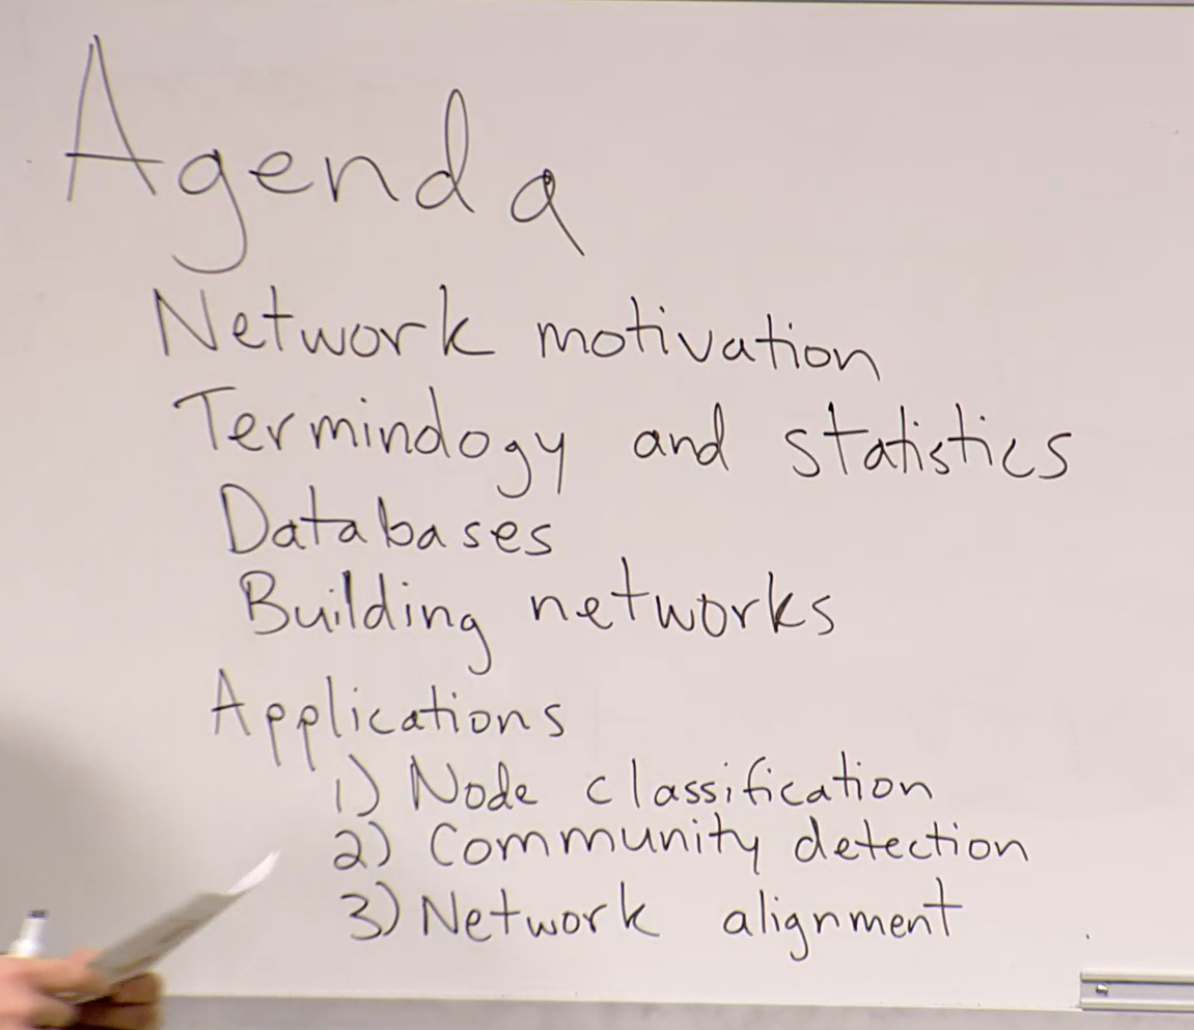 Agenda
Network motivation
Terminology and statistics
Databases
Building networks
Applications
1) Node classification
2) Community detection
3) Network alignment